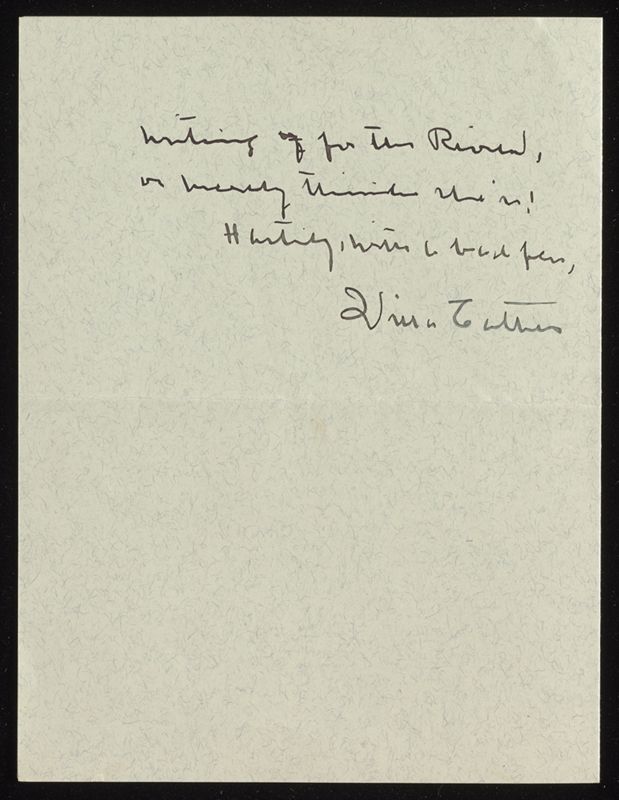 writing of for the Review,
or merely thinks she is!
Hastily, with a bad pen,
Willa Cather